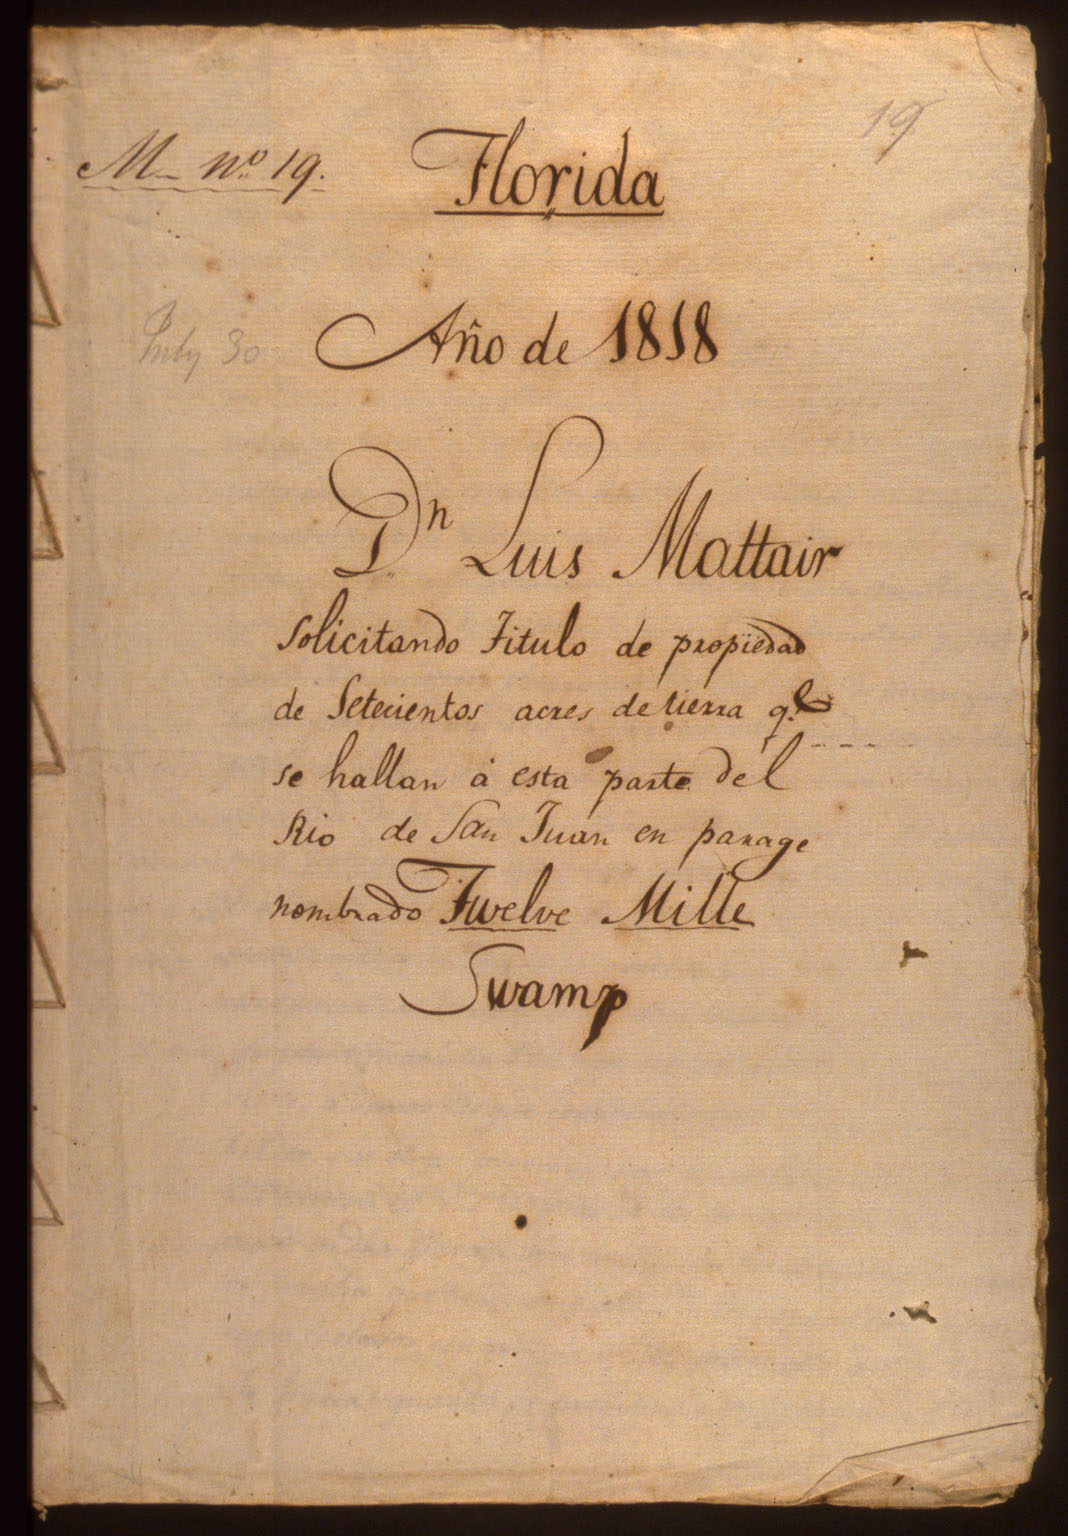 19
M– nº 19.
Florida
July 30
Año de 1818
Dn Luis Mattair
Solicitando Titulo de propiedad
de Setecientos acres de tierra q.e
se hallan á esta parte del
Rio de San Juan en parage
nombrado Twelve Mille
Swamp